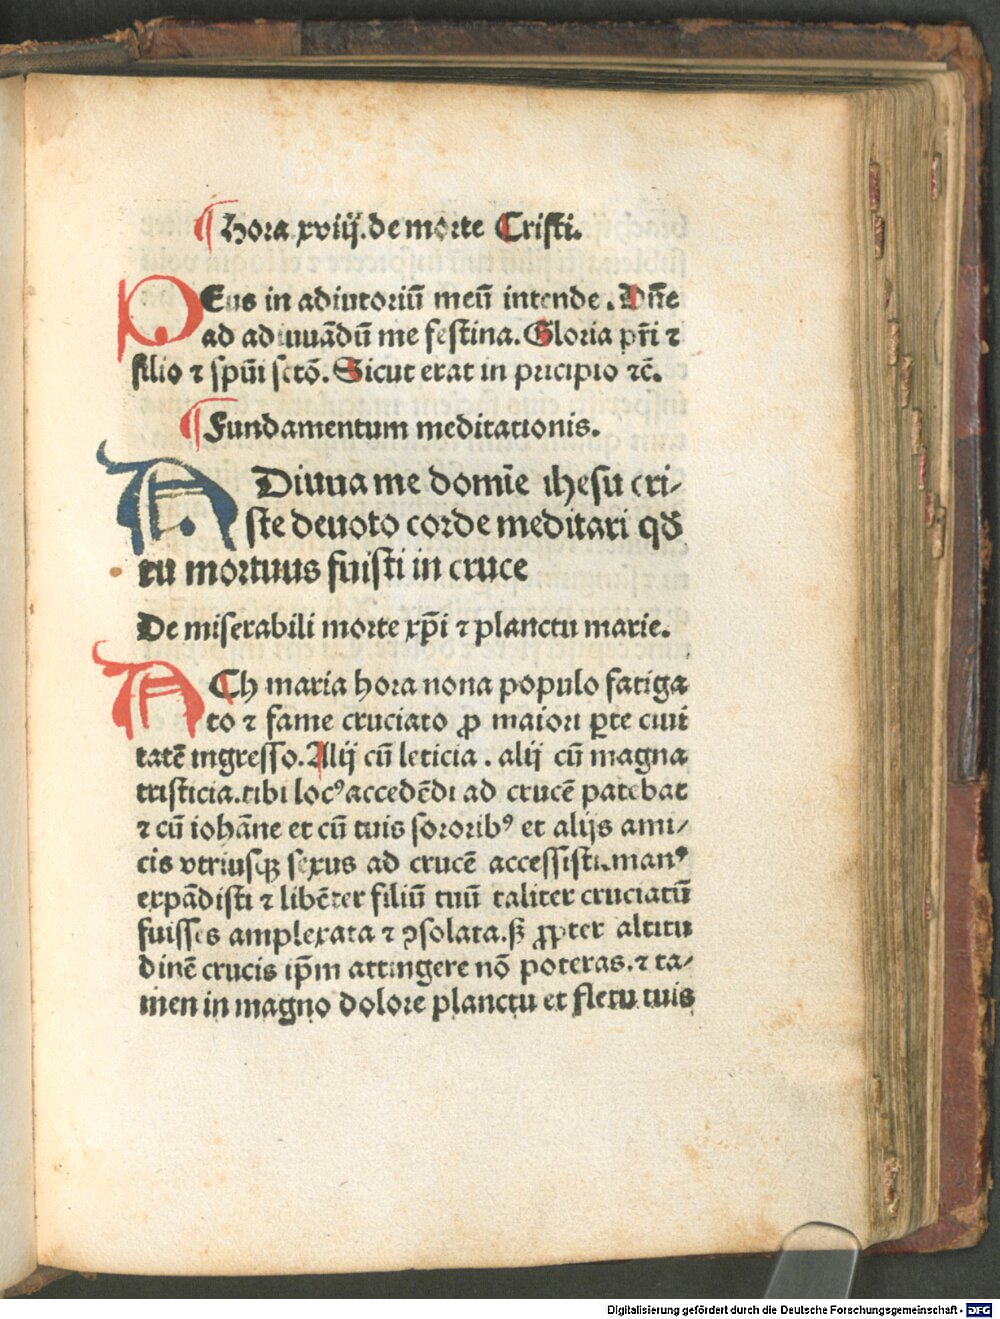 ¶ Hora xviij. de morte Cristi.
DEus in adiutoriū meū intende. Dn̄e
ad adiuuādū me festina. Gloria pr̄i ⁊
filio ⁊ spūi sctō. Sicut erat in pncipio ⁊c̄.
¶ Fundamentum meditationis.
ADiuua me domīe ihesu cri⸗
ste deuoto corde meditari qđ
tu mortuus fuisti in cruce
De miserabili morte xp̄i ⁊ planctu marie.
ACh maria hora nona populo fatiga
to ⁊ fame cruciato ꝓ maiori ꝑte ciui
tatē ingresso. Alij cū leticia. alij cū magna
tristicia. tibi locꝰ accedēdi ad crucē patebat
⁊ cū iohāne et cū tuis sororibꝰ et alijs ami⸗
cis vtriusqꝫ sexus ad crucē accessisti. manꝰ
expādisti ⁊ libēter filiū tuū taliter cruciatū
fuisses amplexata ⁊ ꝯsolata. ß ꝓpter altitu
dinē crucis ip̄m attingere nō poteras. ⁊ ta⸗
men in magno dolore planctu et fletu tuis
Digitalisierung gefördert durch die Deutsche Forschungsgemeinschaft - DFG